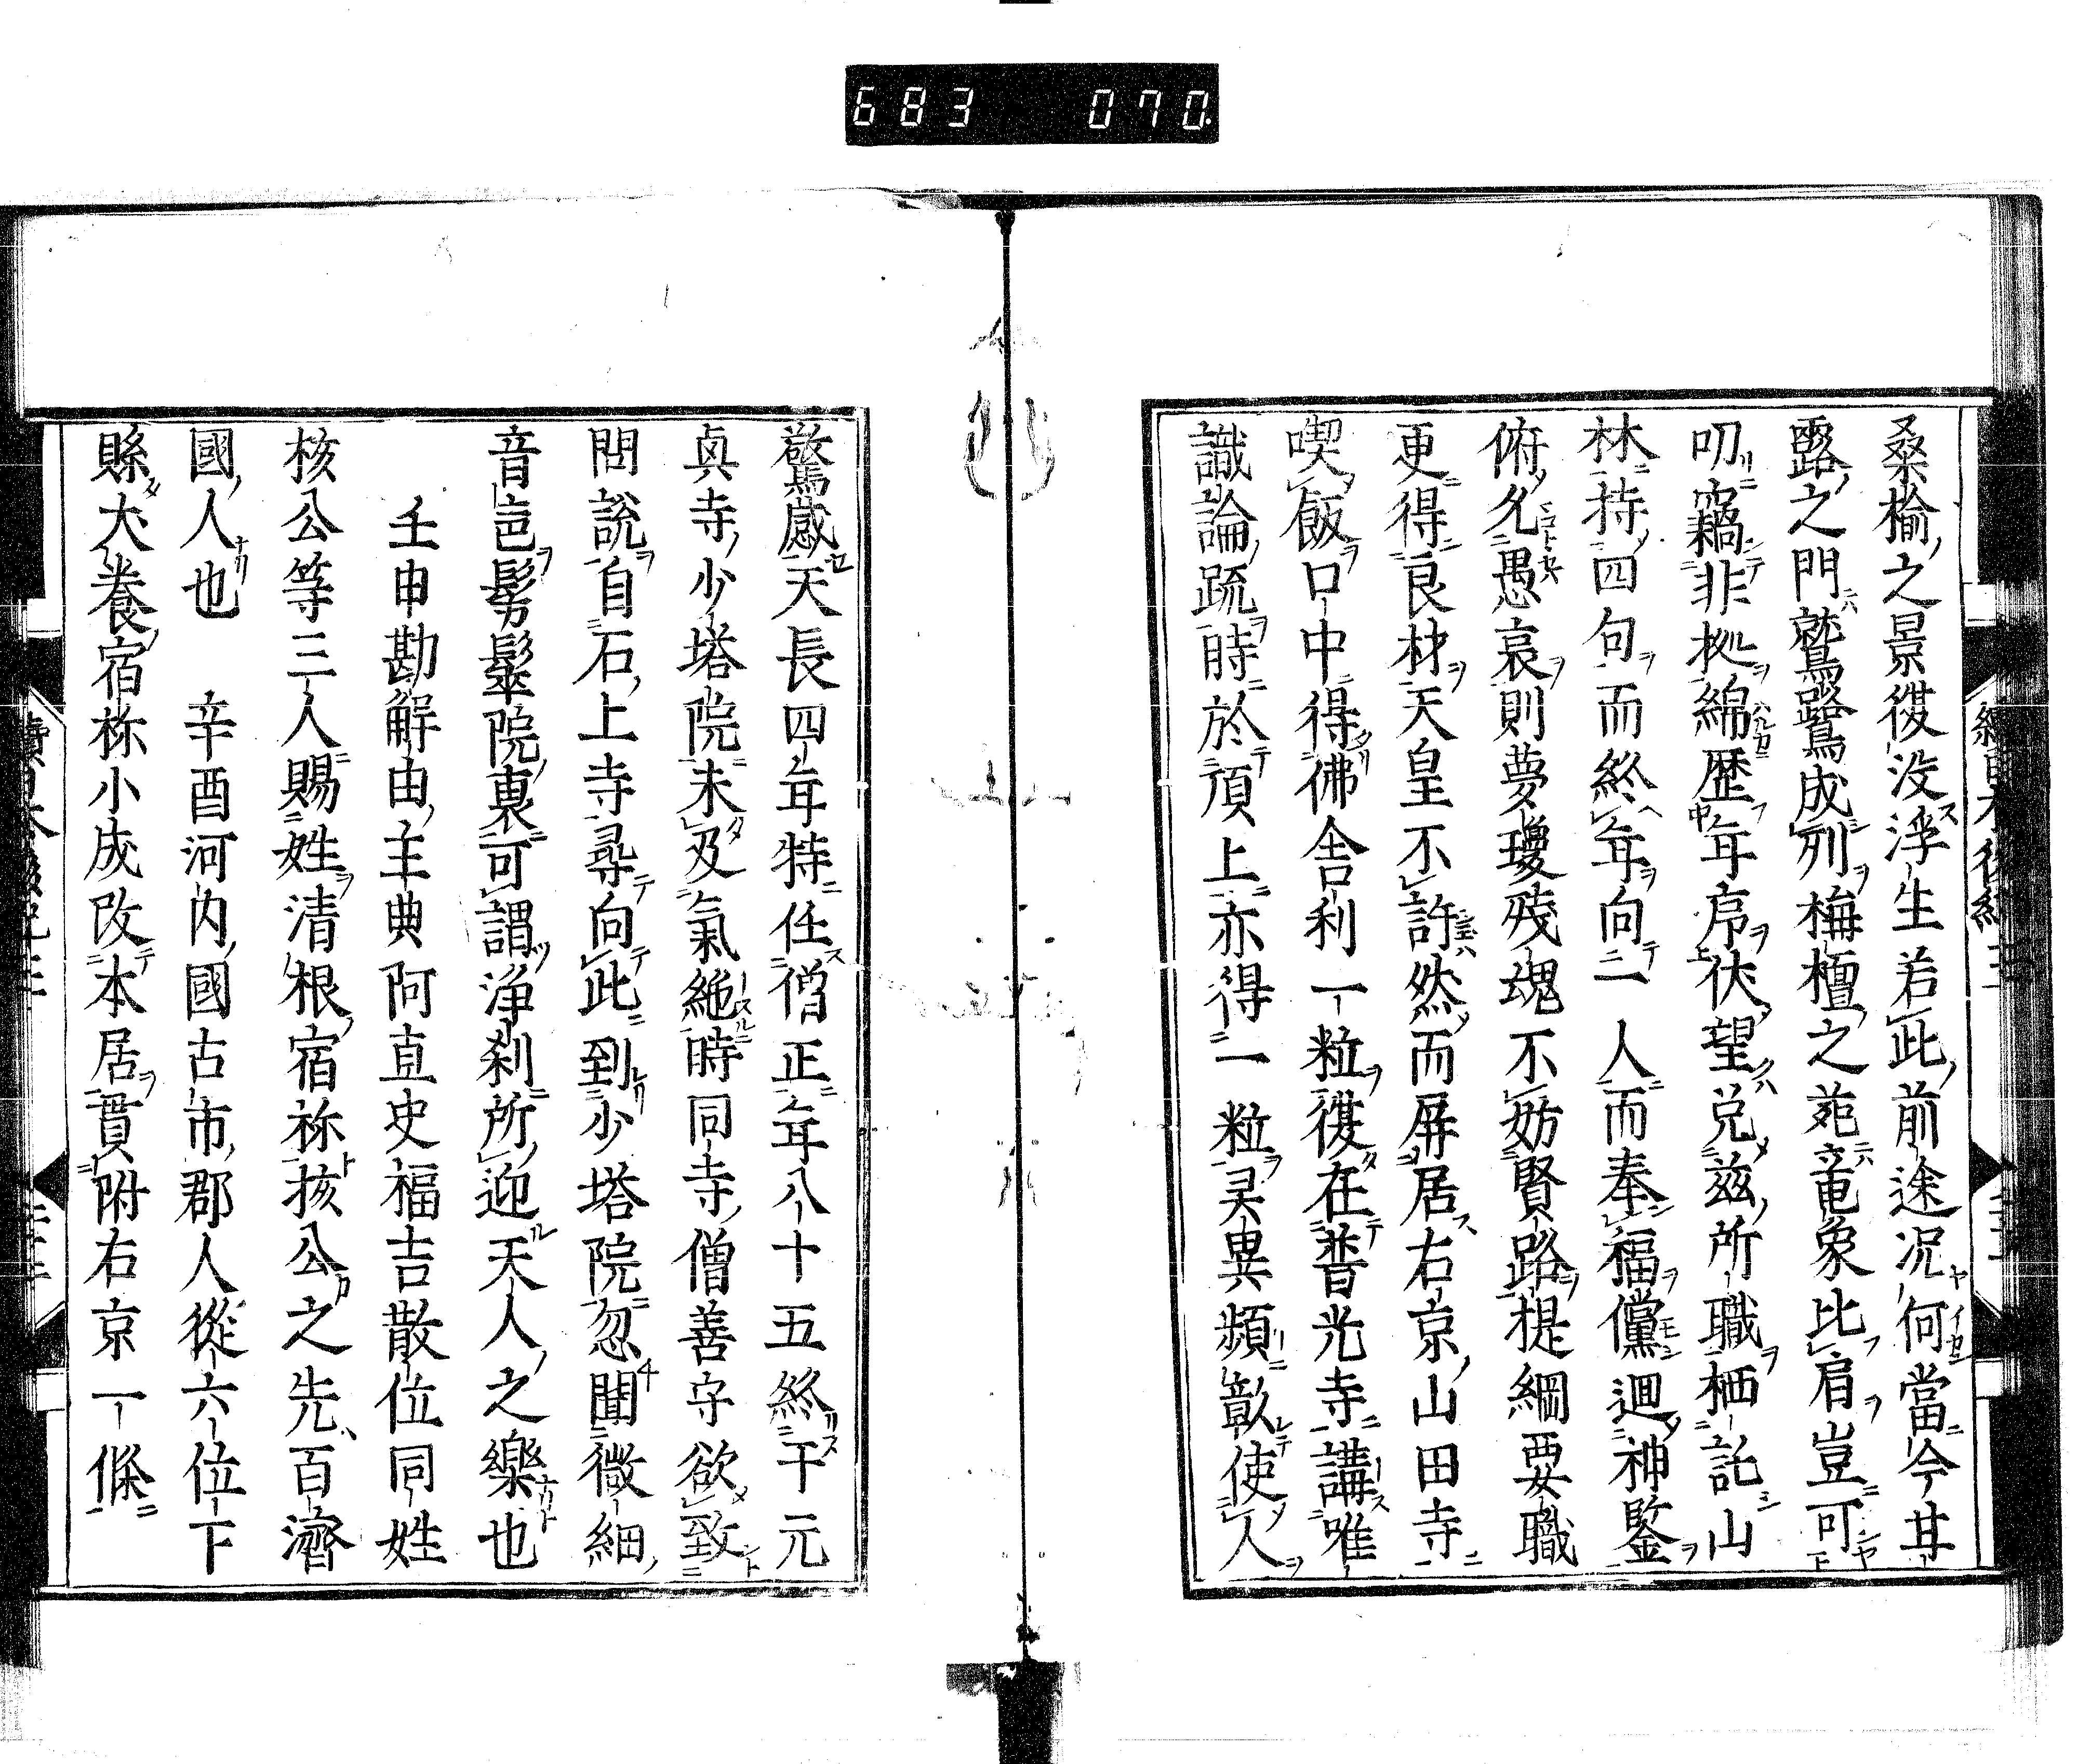 683 070
桑楡之景復没浮生若此前途況何當今其
露之門鷲鷺成列梅檀之苑竜象比肩豈可
叨竊非拠綿歴年序伏望兌茲所職栖託山
林持四句而終年向一人而奉福儻廻神鑒
俯允愚哀則夢瓊残魂不妨賢路提綱要職
更得良材天皇不許然而屏居右京山田寺
喫飯口中得佛舎利一粒復在普光寺講唯
識論疏時於頂上亦得一粒灵異頻歆使人
驚感天長四年特任僧正年八十五終于元
眞寺少塔院未及氣絶時同寺僧善守欲致
問説自石上寺尋向此到少塔院忽聞微細
音邑髣髴院裏可謂浄刹所迎天人之樂也
壬申勘解由主典阿直史福吉散位同姓
核公等三人賜姓清根宿祢核公之先百濟
國人也 辛酉河内國古市郡人從六位下
縣犬養宿祢小成改本居貫附右京一條